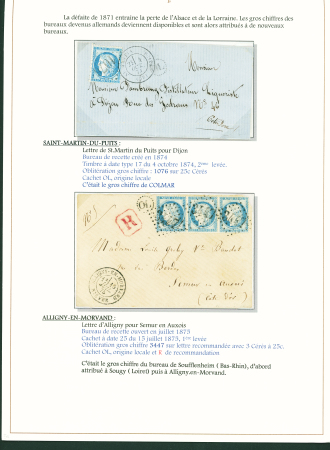 La défaite de 1871 entraîne la perte de l'Alsace et de la Lorraine. Les gros chiffres des
bureaux devenus allemands deviennent disponibles et sont alors attribués à de nouveaux
bureaux.
Monsieur
Monsieur
à Dijon
SAINT-MARTIN-DU-PUITS :
Lettre de St.Martin du Puits pour Dijon
Bureau de recette créé en 1874
Timbre à date type 17 du 4 octobre 1874, 2ème levée.
Oblitération gros chiffre : 1076 sur 25c Cérès
Cachet OL, origine locale
C'était le gros chiffre de COLMAR
R
OL
Madame
Semur en Auxois
(Côte d'Or)
ALLIGNY-EN-MORVAND :
Lettre d'Alligny pour Semur en Auxois
Bureau de recette ouvert en juillet 1873
Cachet à date 23 du 15 juillet 1873, 1ère levée
Oblitération gros chiffre 3447 sur lettre recommandée avec 3 Cérès à 25c.
Cachet OL, origine locale et R de recommandation
C'était le gros chiffre du bureau de Soufflenheim ( Bas-Rhin), d'abord
attribué à Sougy ( Loiret) puis à Alligny-en-Morvand.